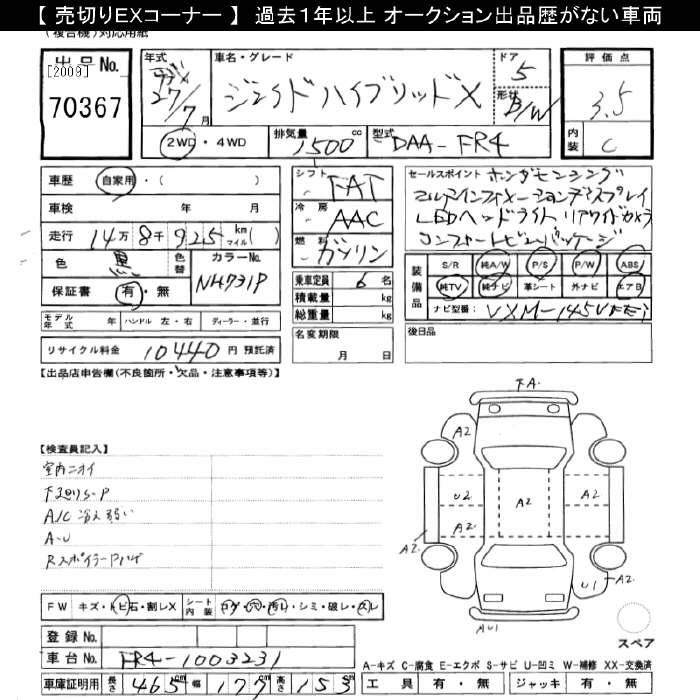 【 売切りEXコーナー 】 過去1年以上 オークション出品歴がない車両
(複合機)対応用紙
出品No.
[2009]
70367
年式
27/7月
車名・グレード
ジェイドハイブリッドX
ドア
5
形状
B/W
評価点
3.5
内装
C
2WD・4WD
排気量
1500cc
型式
DAA-FR4
車歴 自家用・( )
車検 年 月
走行 14万8千925 kmマイル( )
色 黒 色替
カラーNo.
NH731P
保証書 有・無
シフト FAT
冷房 AAC
燃料 ガソリン
乗車定員 6名
積載量 kg
総重量 kg
セールスポイント ホンダセンシング
マルチインフォメーションディスプレイ
LEDヘッドライト リアワイドカメラ
コンフォートビューパッケージ
装備品
S/R 純A/W P/S P/W ABS
純TV 純ナビ 革シート 外ナビ エアB
ナビ型番: VXM-145VFEi
モデル年式 年 ハンドル 左・右 ディーラー・並行
リサイクル料金 10440円 預託済
名変期限
月 日
後日品
【出品店申告欄(不良箇所・欠品・注意事項等)】
【検査員記入】
室内ニオイ
下廻りS-P
A/C 冷え弱い
A-U
RスポイラーPハゲ
F.A.
A2
U2 A2 A2
A2 A2
A2
U1 A2
AU1
スペア
FW キズ・トビ石・割レX
シート内装 コゲ・穴・汚レ・シミ・破レ・スレ
登録No.
車台No. FR4-1003231
車庫証明用 長さ 465cm 幅 177cm 高さ 153cm
A-キズ C-腐食 E-エクボ S-サビ U-凹ミ W-補修 XX-交換済
工具 有・無 ジャッキ 有・無